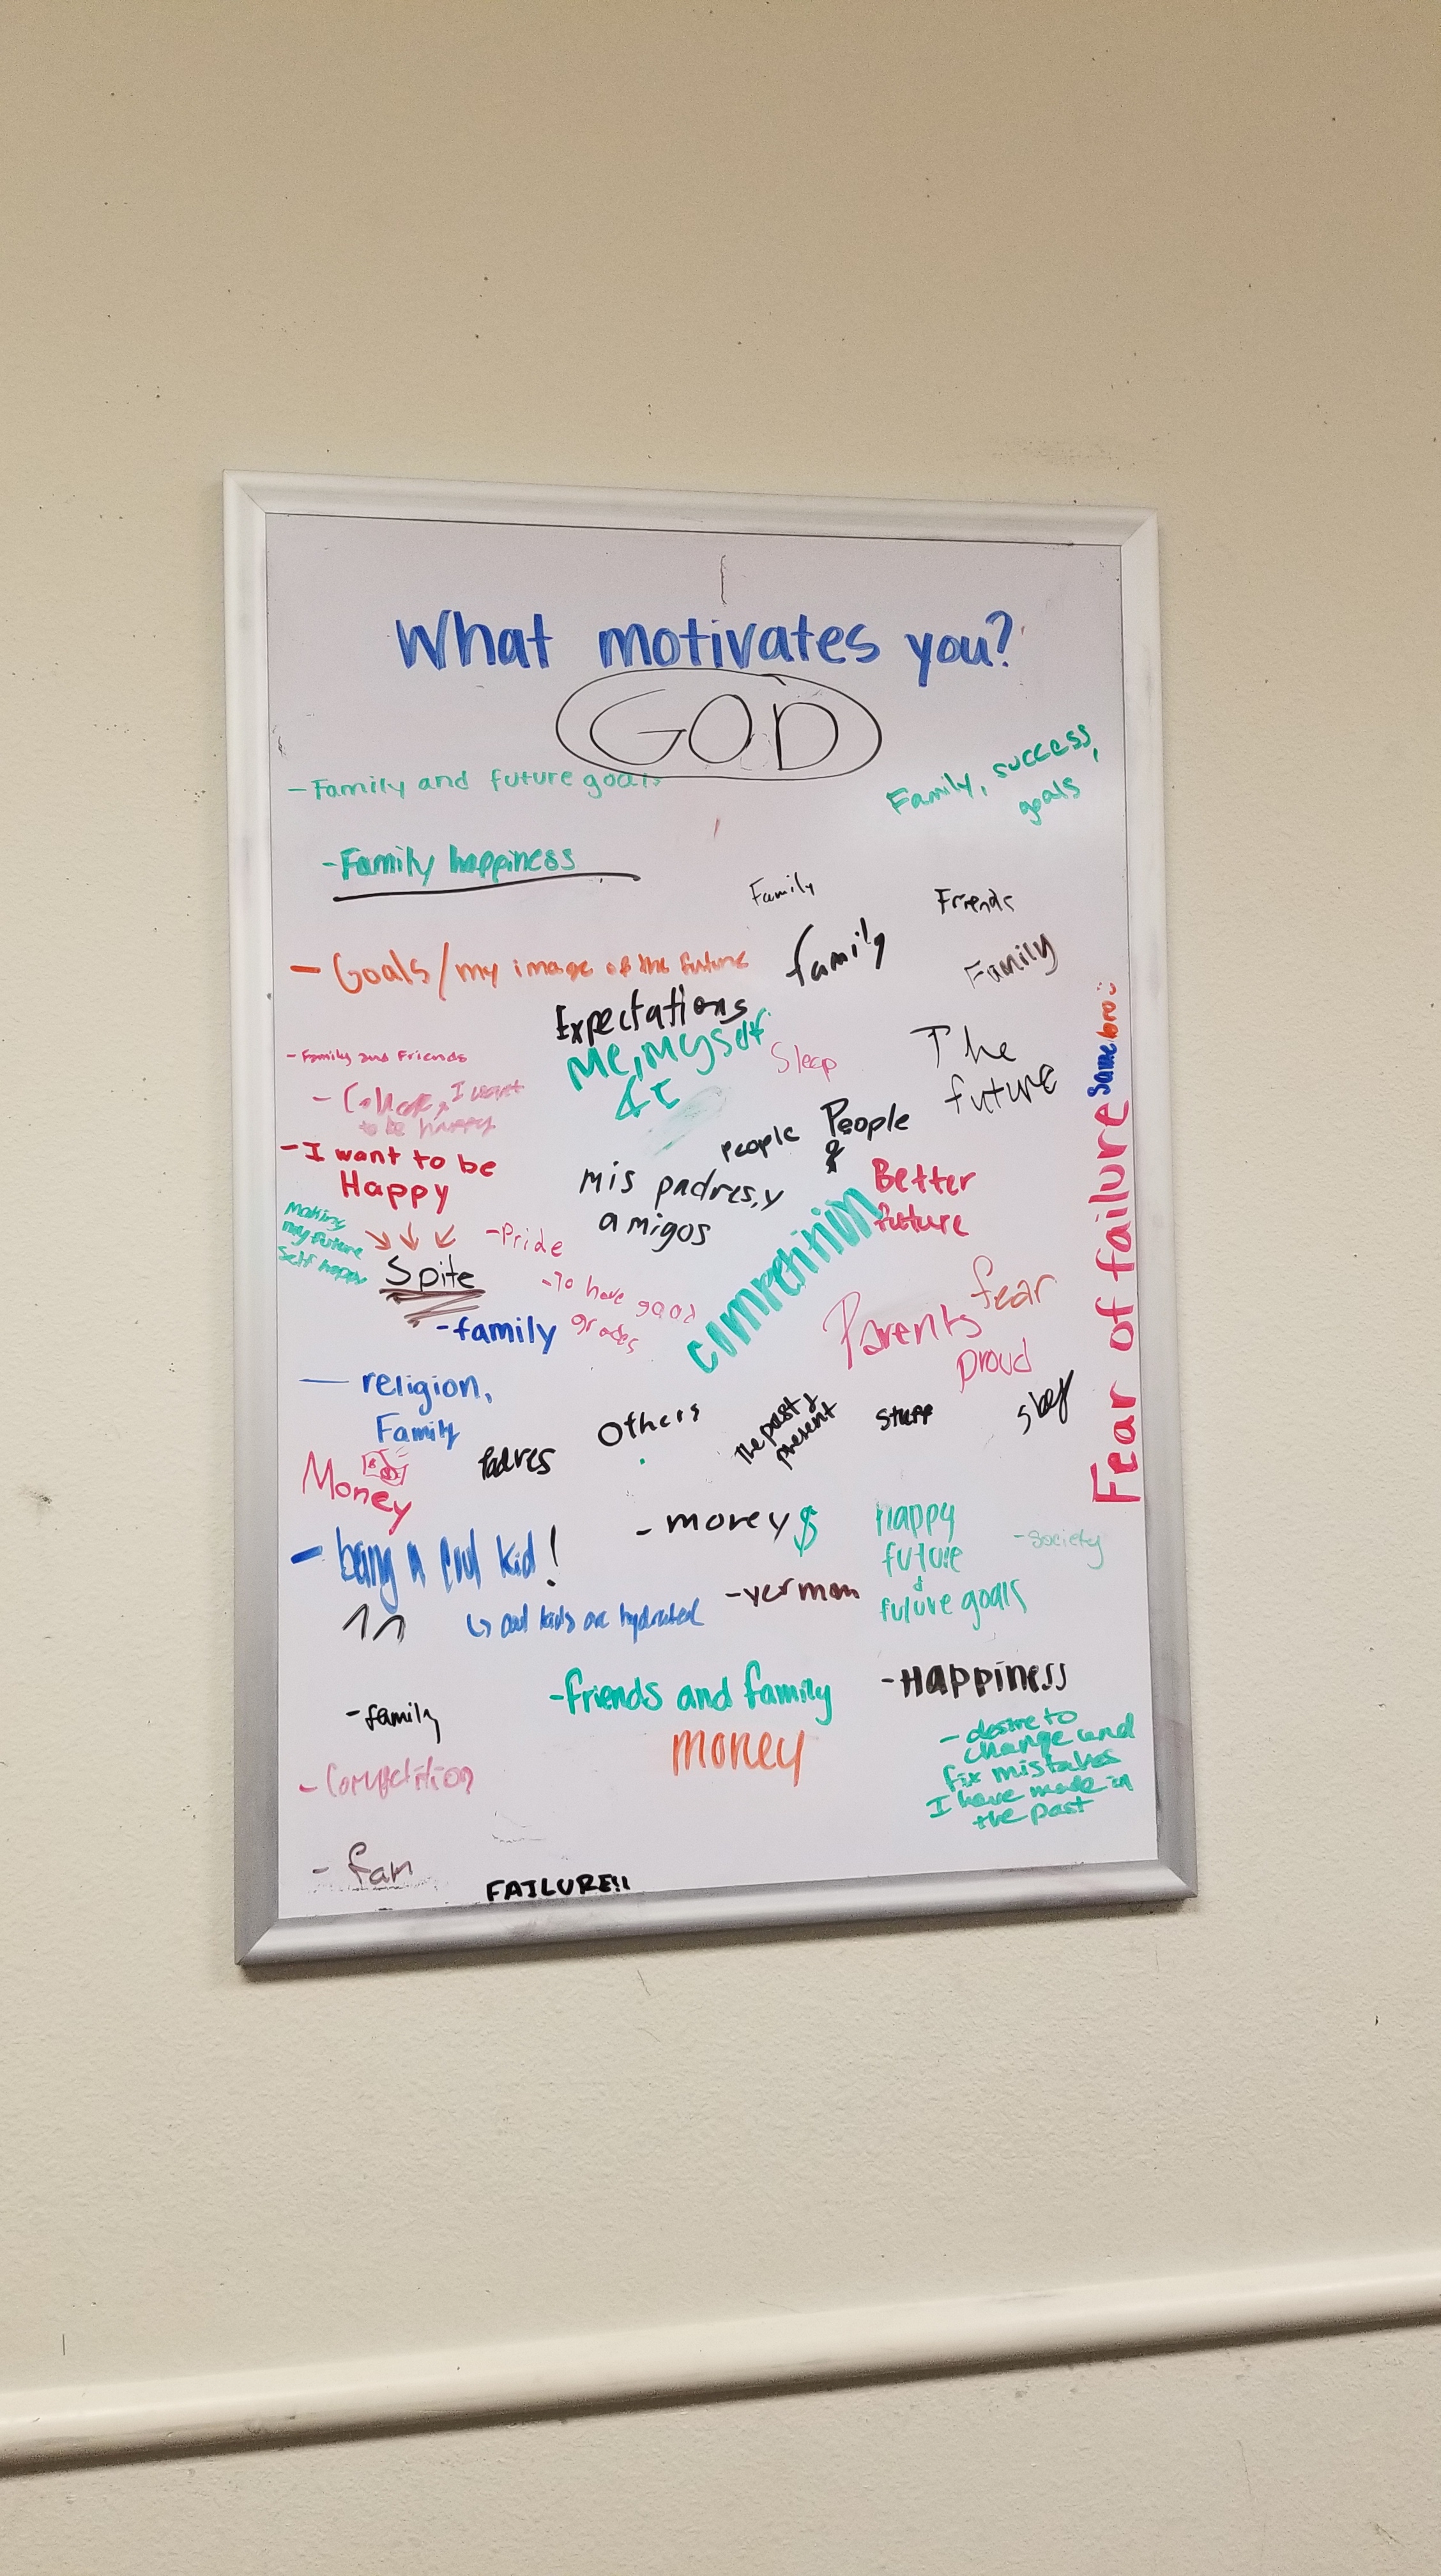 What motivates you?
GOD
- Family and future goals
Family, success,
goals
- Family happiness
Family
Friends
- Goals/my image of the future
family
Family
Expectations
Me, Myself
& I
Sleep
The
future
- Family and Friends
I want
to be happy
- I want to be
Happy
people
People
&
mis padres, y
amigos
Better
future
Making
my future
self happy
Spite
- Pride
- To have good
grades
- family
competition
fear
Parents
proud
Fear of failure
Same bro
— religion,
Family
Money
Padres
Others
The past &
present
Stuff
- money $
- being a cool kid!
↳ cool kids are hydrated
- yer mom
happy
future
&
future goals
- Society
- family
- friends and family
money
- Happiness
- desire to
change and
fix mistakes
I have made in
the past
- Competition
FAILURE!!